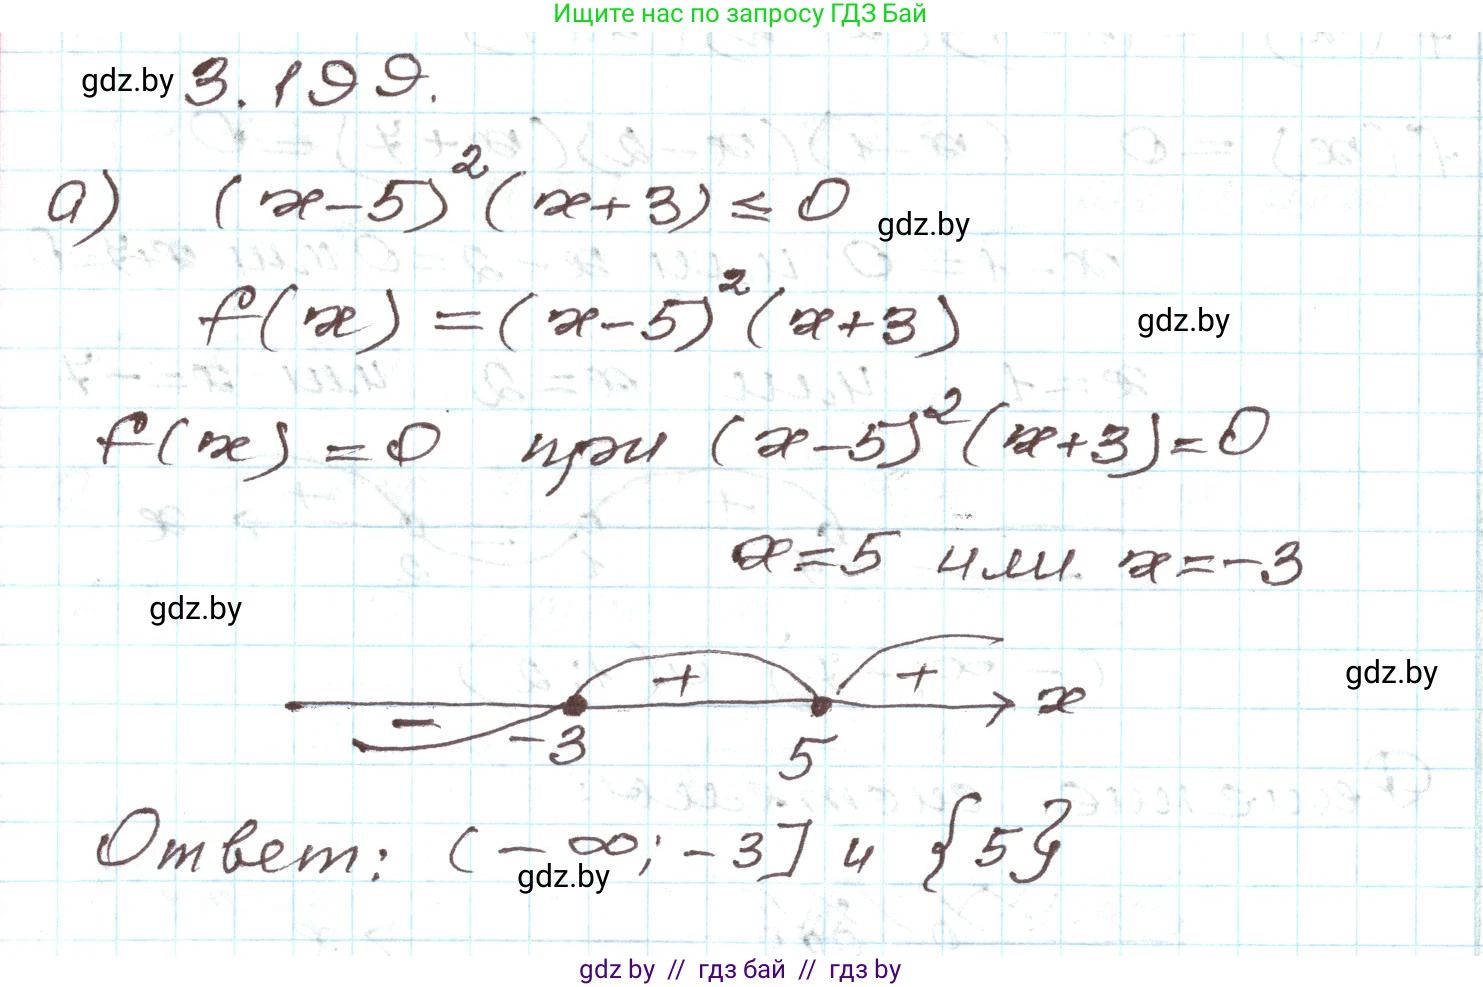 Ищите нас по запросу ГДЗ Бай
gdz.by 3.199.
а) (x-5)²(x+3) ≤ 0
gdz.by
f(x) = (x-5)²(x+3)
gdz.by
f(x) = 0 при (x-5)²(x+3) = 0
x = 5 или x = -3
gdz.by
+ + x
gdz.by
- -3 5
Ответ: (-∞; -3] и {5}
gdz.by
gdz by // гдз бай // гдз by